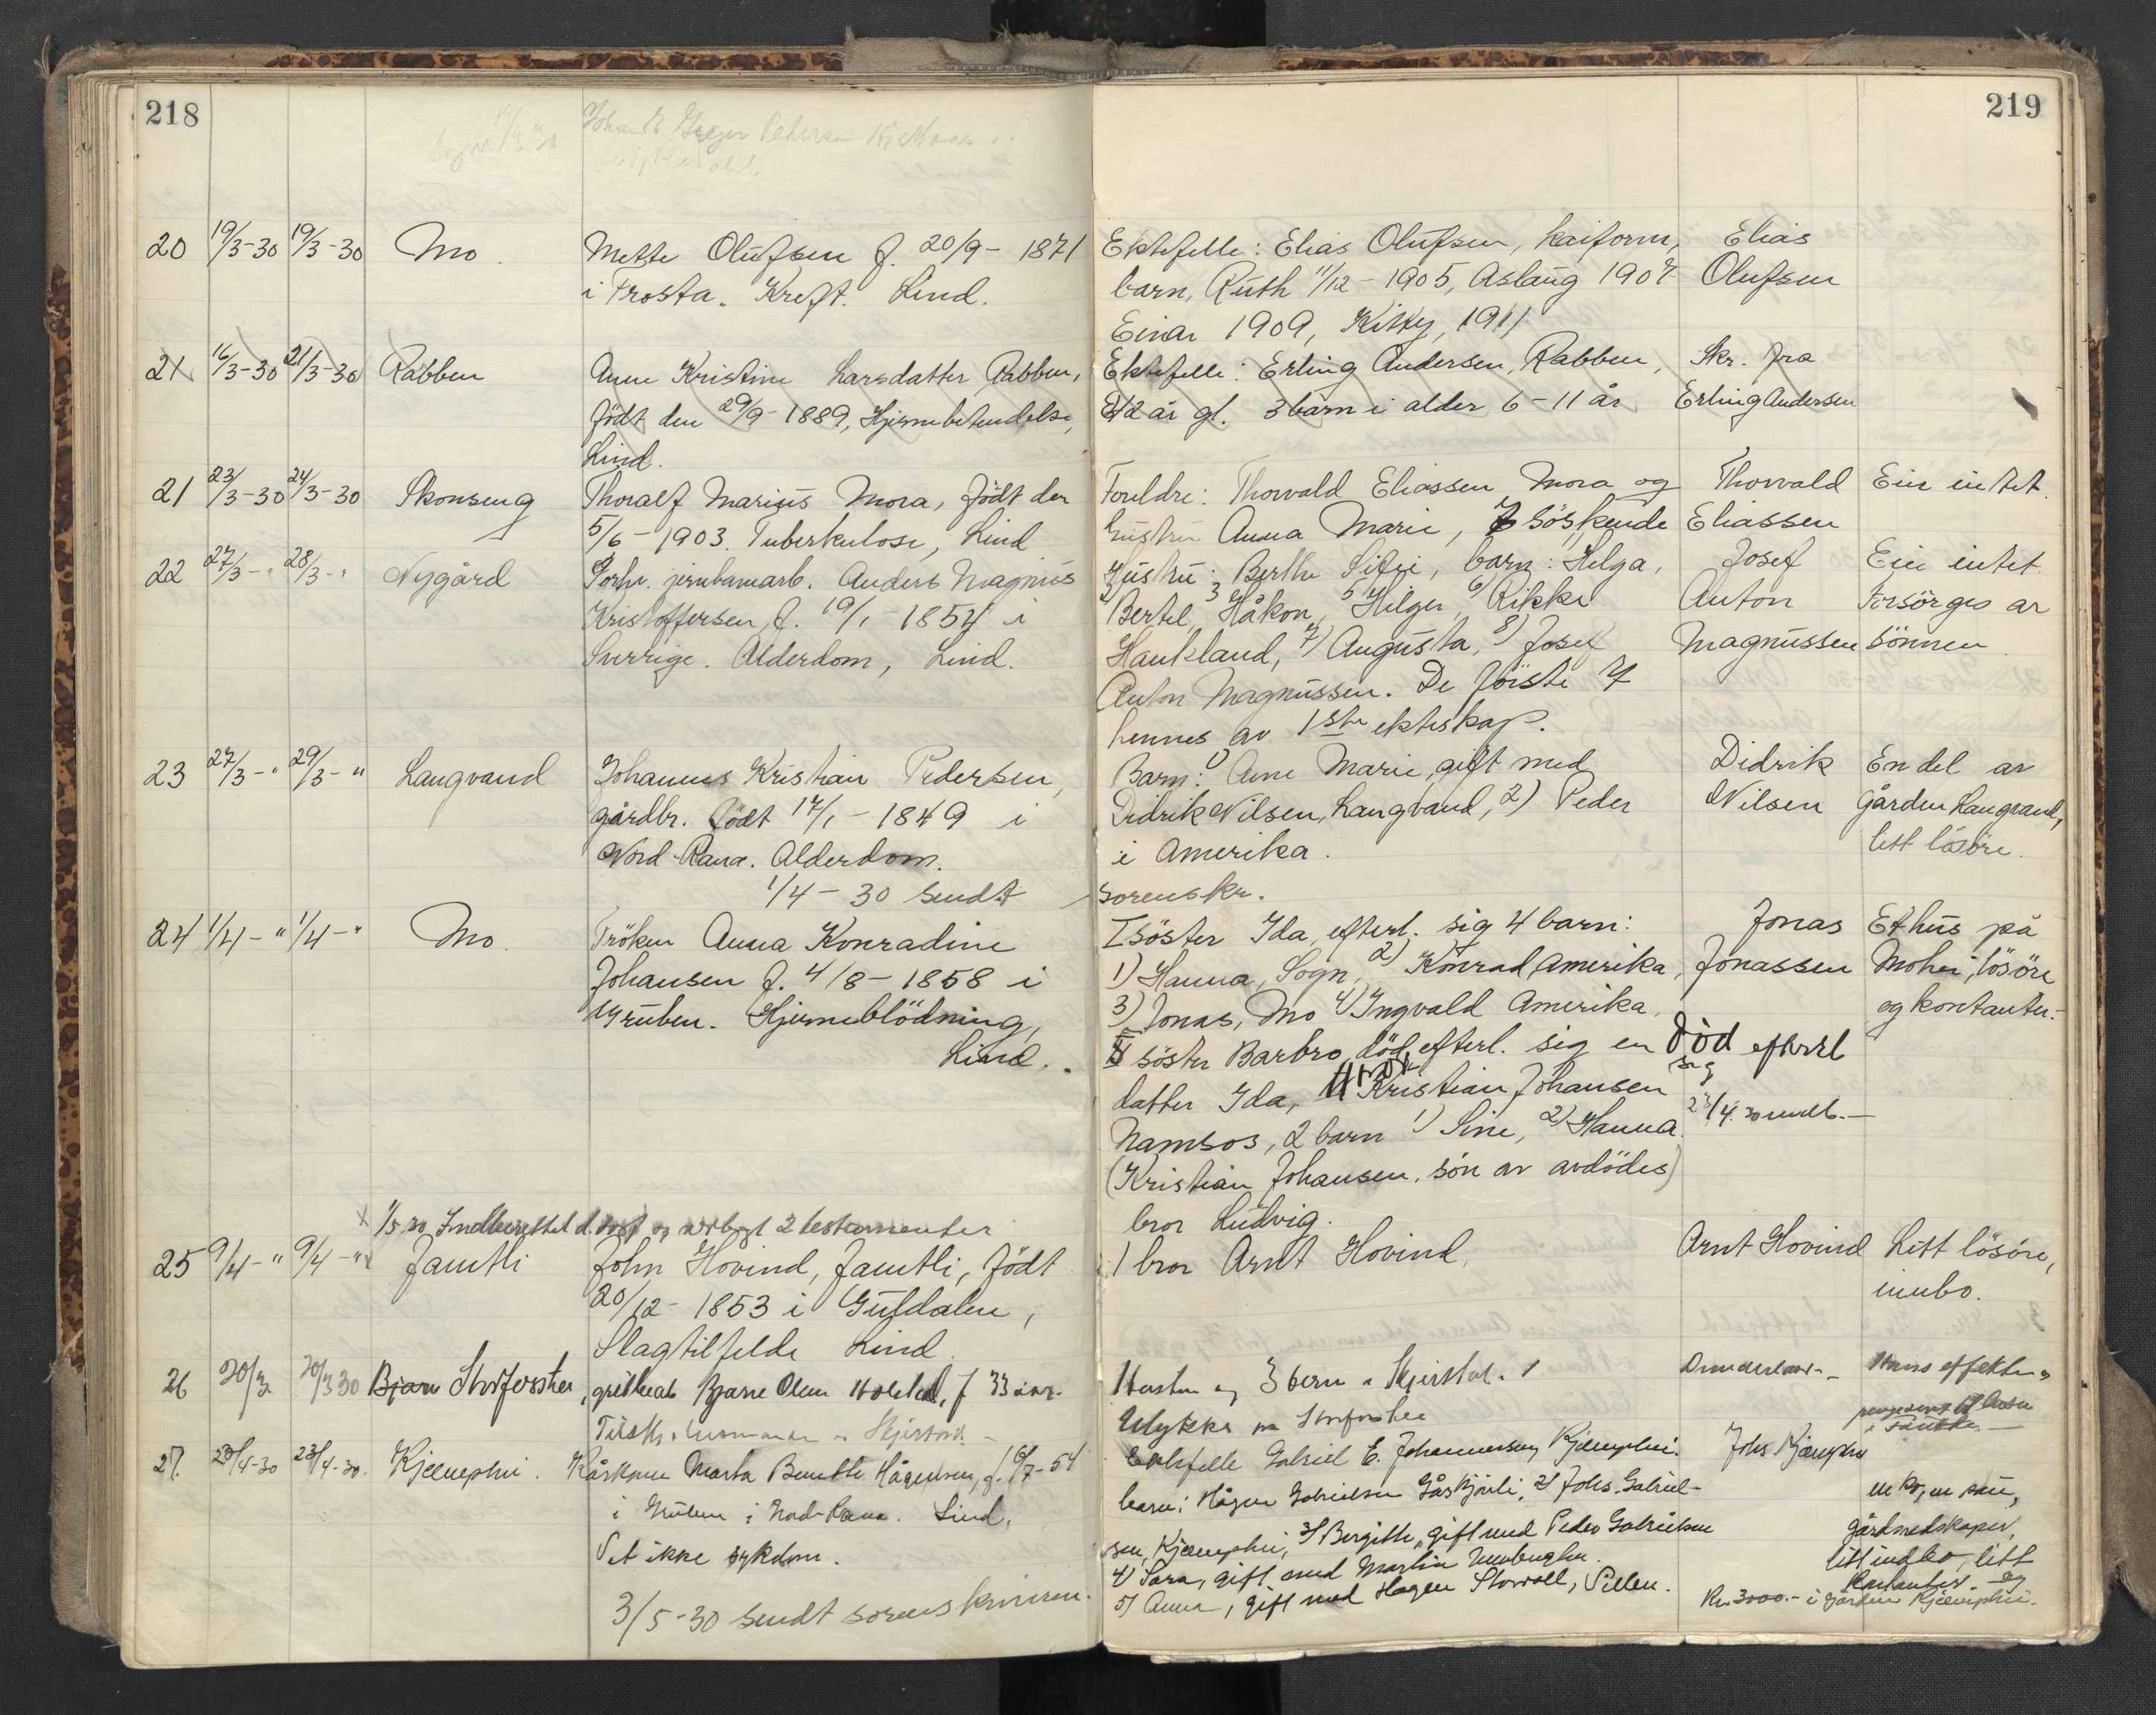 218
219
20 19/3-30 19/3-30 Mo. Mette Olufsen f. 20/9- 1871
i Frosta. Kreft. Lind.
Ektefelle: Elias Olufsen, kaiform,
barn, Ruth 11/12-1905, Aslaug 1907
Einar 1909, Kitty, 1911
Elias
Olufsen
21 16/3-30 21/3-30 Rabben Anne Kristine Larsdatter, Rabben,
født den 29/9-1889, Hjernebetendelse,
Lind.
Ektefelle: Erling Andersen, Rabben,
42 år gl. 3 barn i alder 6-11 år
Skr. fra
Erling Andersen
21 23/3-30 24/3-30 Skonseng Thoralf Marius Mora, født den
5/6-1903. Tuberkulose, Lind
Foreldre: Thorvald Eliassen Mora og
hustru Anna Marie, 7 søskende
Thorvald
Eliassen
Eier intet.
22 27/3-" 28/3-" Nygård Forhv. jernbanearb. Anders Magnus
Kristoffersen, f. 19/1-1854 i
Sverrige. Alderdom, Lind.
Hustru: Berthe Sifri, barn: Helga,
2) Bertel, 3 Håkon, 5 Hilger, 6) Rikke
Haukland, 7) Augusta, 8) Josef
Anton Magnussen. De første 7
hennes av 1ste ekteskap.
Josef
Anton
Magnussen
Eier intet.
Forsørges av
sønnen.
23 27/3-" 29/3-" Langvand Johannes Kristian Pedersen,
gårdbr. født 17/1-1849 i
Nord-Rana. Alderdom.
1/4-30 sendt sorenskr.
Barn: 1) Anne Marie, gift med
Didrik Nilsen, Langvand, 2) Peder
i Amerika.
Didrik
Nilsen
En del av
gården Langvand,
litt løsøre.
24 1/4-" 1/4-" Mo. Frøken Anna Konradine
Johansen f. 4/8-1858 i
Gruben. Hjerneblødning,
Lind.
I søster Ida, efterl. sig 4 barn:
1) Hanna, Sogn, 2) Konrad, Amerika,
3) Jonas, Mo 4) Ingvald Amerika,
II søster Barbro, død, efterl. sig en
datter Ida, Kristian Johansen
Namsos, 2 barn 1) Sine, 2) Hanna.
(Kristian Johansen, søn av avdødes)
bror Ludvig.
Jonas
Jonassen
død efterl
sig
Et hus på
Mohei, løsøre
og kontanter.
x 1/5 30 Indberettet d. 2 testamenter
25 9/4-" 9/4-" Jamtli John Hovind, Jamtli, født
20/12-1853 i Guldalen,
Slagtilfelde Lind.
1 bror Arnt Hovind,
Arnt Hovind
Litt løsøre,
innbo.
26 20/3 20/3 30 Bjarne Storforshei, Bjarne Olsen f 33 aar.
Hustru og 3 barn
Ulykke Storforshei
Hans effekter
27. 20/4-30 23/4-30. Kjemphei. Kårkone Marta Benette Hågensen, f. 16/7-54
i Gruben i Nord-Rana. Lind.
Vet ikke sykdom.
3/5-30 sendt sorenskriveren.
Ektefelle Gabriel E. Johannesen, Kjemphei.
barn: Hågen Gabrielsen Gåskjønli, 2) Johs. Gabriel-
sen, Kjemphei, 3) Bergitte, gift med Peder Gabrielsen
4) Sara, gift med Martin
5) Anna, gift med Hagen Storvoll,
Johs Kjemphei
en ko, en sau,
gårdredskaper,
litt indbo, litt
kontanter. og
Kr. 3000.- i gården Kjemphei.